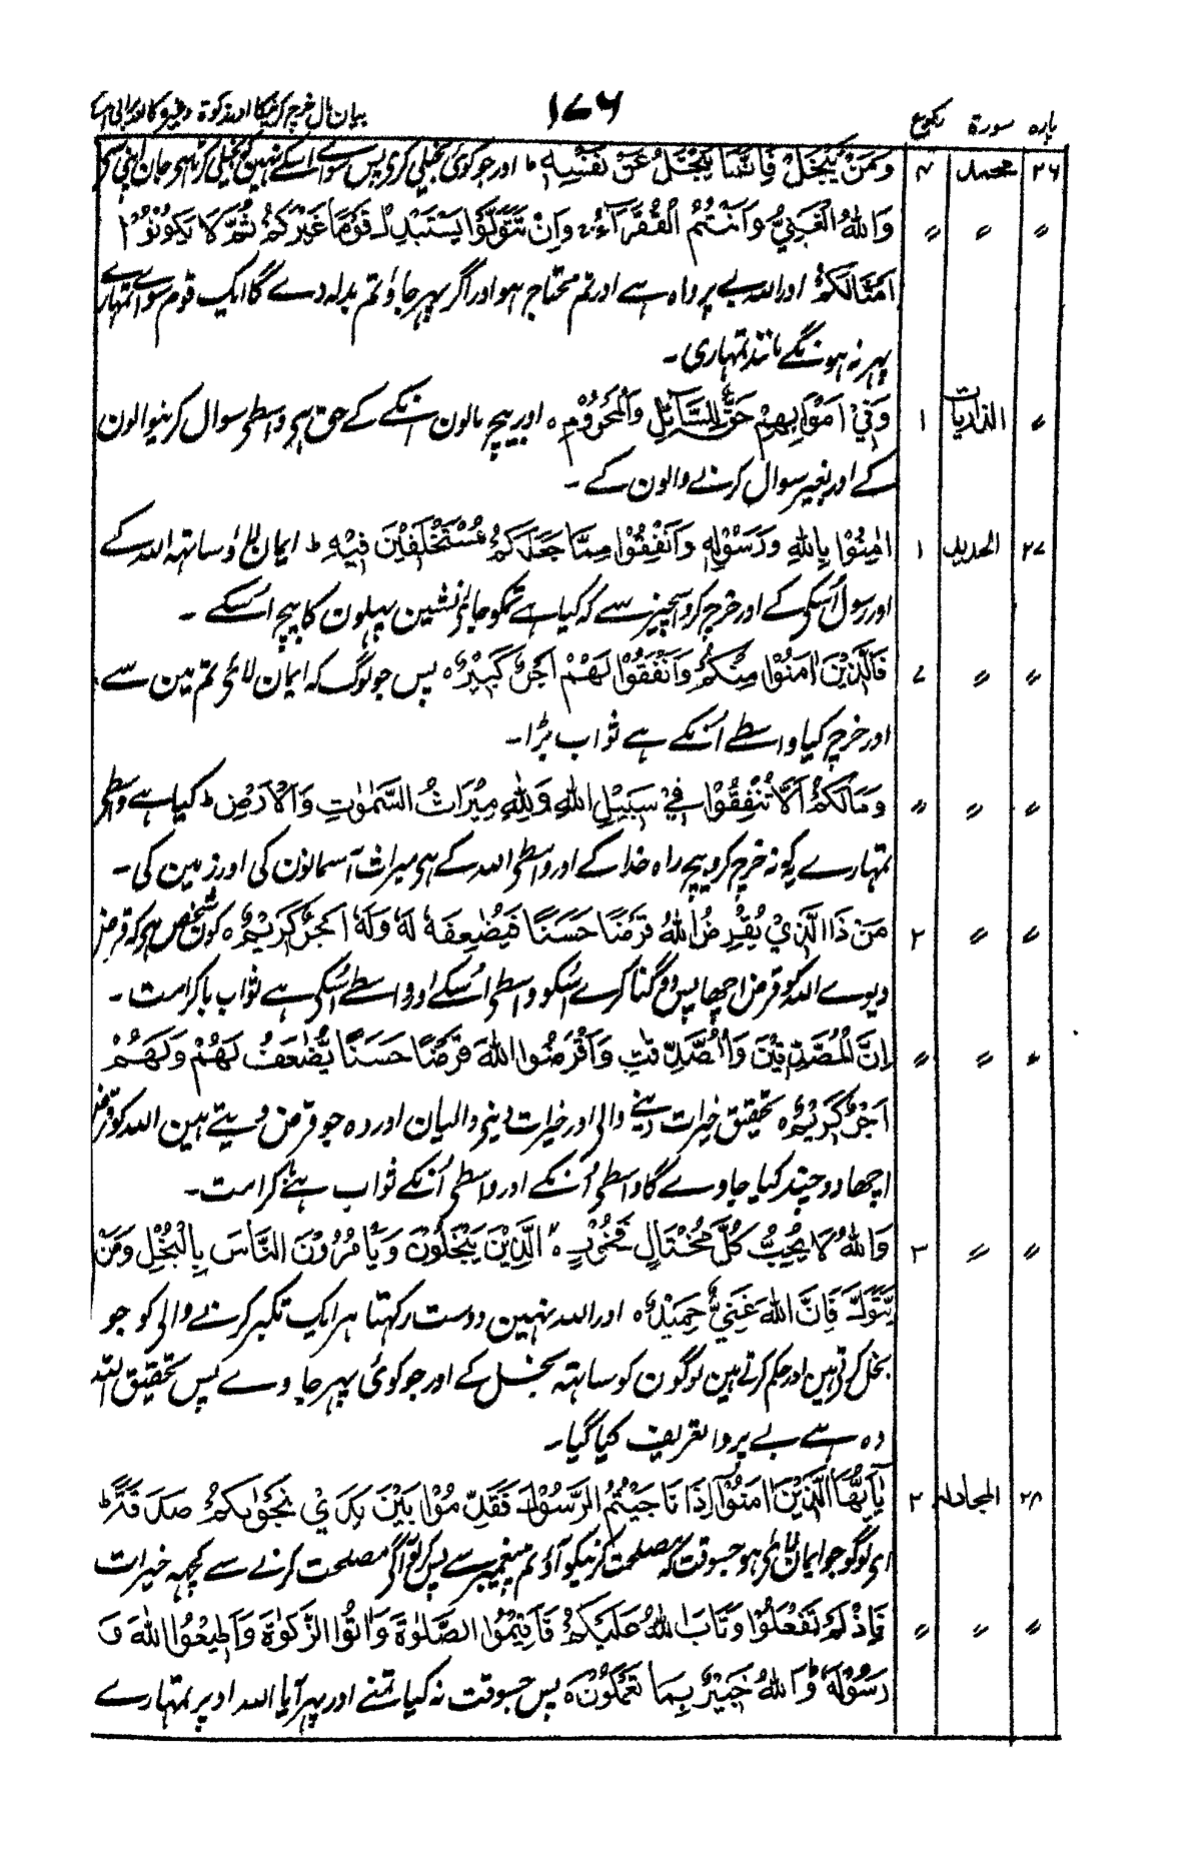 ۱۷۶
بیان مال خرچ کرنیکا اور زکوٰۃ وغیرہ کا
پارہ سورۃ رکوع
۲۶ محمد ۴ وَمَنْ يَّبْخَلْ فَاِنَّمَا يَبْخَلُ عَنْ نَّفْسِهٖ ؕ اور جو کوئی بخیلی کری پس سوائے اسکے نہین کہ بخیلی کرتا ہی جان اپنی سی
〃 〃 〃 وَاللّٰهُ الْغَنِيُّ وَاَنْتُمُ الْفُقَرَآءُ ۚ وَاِنْ تَتَوَلَّوْا يَسْتَبْدِلْ قَوْمًا غَيْرَكُمْ ثُمَّ لَا يَكُوْنُوْٓا
اَمْثَالَكُمْ اور اللہ بے پرواہ ہے اور تم محتاج ہو اور اگر پہر جاؤ تم بدلہ دے گا ایک قوم سوائے تمہارے
پہر نہ ہونگے مانند تمہاری ۔
〃 الذاریات ۱ وَفِيْٓ اَمْوَالِهِمْ حَقٌّ لِّلسَّآئِلِ وَالْمَحْرُوْمِ ہ اور بیچ مالون انکے کے حق ہی واسطی سوال کرنیوالون
کے اور بغیر سوال کرنے والون کے ۔
۲۷ الحدید ۱ اٰمِنُوْا بِاللّٰهِ وَرَسُوْلِهٖ وَاَنْفِقُوْا مِمَّا جَعَلَكُمْ مُّسْتَخْلَفِيْنَ فِيْهِ ؕ ایمان لاؤ ساتہہ اللہ کے
اور رسول اُسکی کے اور خرچ کرو اسچیز سے کہ کیا ہے تمکو جانشین پہلون کا بیچ اُسکے ۔
〃 〃 ۷ فَالَّذِيْنَ اٰمَنُوْا مِنْكُمْ وَاَنْفَقُوْا لَهُمْ اَجْرٌ كَبِيْرٌ ہ پس جو لوگ کہ ایمان لائی تم مین سے
اور خرچ کیا واسطے اُنکے ہے ثواب بڑا۔
〃 〃 〃 وَمَا لَكُمْ اَلَّا تُنْفِقُوْا فِيْ سَبِيْلِ اللّٰهِ وَلِلّٰهِ مِيْرَاثُ السَّمٰوٰتِ وَالْاَرْضِ ؕ کیا ہے واسطی
تمہارے کہ نہ خرچ کرو بیچ راہ خدا کے اور واسطی اللہ کے ہی میراث آسمانون کی اور زمین کی ۔
〃 〃 ۲ مَنْ ذَا الَّذِيْ يُقْرِضُ اللّٰهَ قَرْضًا حَسَنًا فَيُضٰعِفَهٗ لَهٗ وَلَهٗٓ اَجْرٌ كَرِيْمٌ ہ کون شخص ہی کہ قرض
دیوے اللہ کو قرض اچھا پس دوگنا کرے اسکو واسطی اُسکے اور واسطے اُسکی ہے ثواب با کرامت ۔
〃 〃 〃 اِنَّ الْمُصَّدِّقِيْنَ وَالْمُصَّدِّقٰتِ وَاَقْرَضُوا اللّٰهَ قَرْضًا حَسَنًا يُّضٰعَفُ لَهُمْ وَلَهُمْ
اَجْرٌ كَرِيْمٌ ہ تحقیق خیرات دینے والی اور خیرات دینی والیان اور وہ جو قرض دیتے ہین اللہ کو قرض
اچھا دوچند کیا جاوے گا واسطی اُنکے اور واسطی اُنکے ثواب ہے با کرامت ۔
〃 〃 ۳ وَاللّٰهُ لَا يُحِبُّ كُلَّ مُخْتَالٍ فَخُوْرٍ ہ الَّذِيْنَ يَبْخَلُوْنَ وَيَاْمُرُوْنَ النَّاسَ بِالْبُخْلِ وَمَنْ
يَّتَوَلَّ فَاِنَّ اللّٰهَ غَنِيٌّ حَمِيْدٌ ہ اور اللہ نہین دوست رکہتا ہر ایک تکبر کرنے والی کو جو
بخل کرتی ہین اور حکم کرتے ہین لوگون کو ساتہہ بخل کے اور جو کوئی پہر جاوے پس تحقیق اللہ
وہ ہے بے پروا تعریف کیا گیا ۔
۲۸ المجادلہ ۲ يٰٓاَيُّهَا الَّذِيْنَ اٰمَنُوْٓا اِذَا نَاجَيْتُمُ الرَّسُوْلَ فَقَدِّمُوْا بَيْنَ يَدَيْ نَجْوٰىكُمْ صَدَقَةً ؕ
ای لوگو جو ایمان لائی ہو جسوقت کہ مصلحت کرنیکو آؤ تم پیغمبر سے پس کرلو آگی مصلحت کرنے سے کچہہ خیرات
〃 〃 〃 فَاِذْ لَمْ تَفْعَلُوْا وَتَابَ اللّٰهُ عَلَيْكُمْ فَاَقِيْمُوا الصَّلٰوةَ وَاٰتُوا الزَّكٰوةَ وَاَطِيْعُوا اللّٰهَ وَ
رَسُوْلَهٗ ؕ وَاللّٰهُ خَبِيْرٌۢ بِمَا تَعْمَلُوْنَ ہ پس جسوقت نہ کیا تمنے اور پہر آیا اللہ اوپر تمہارے